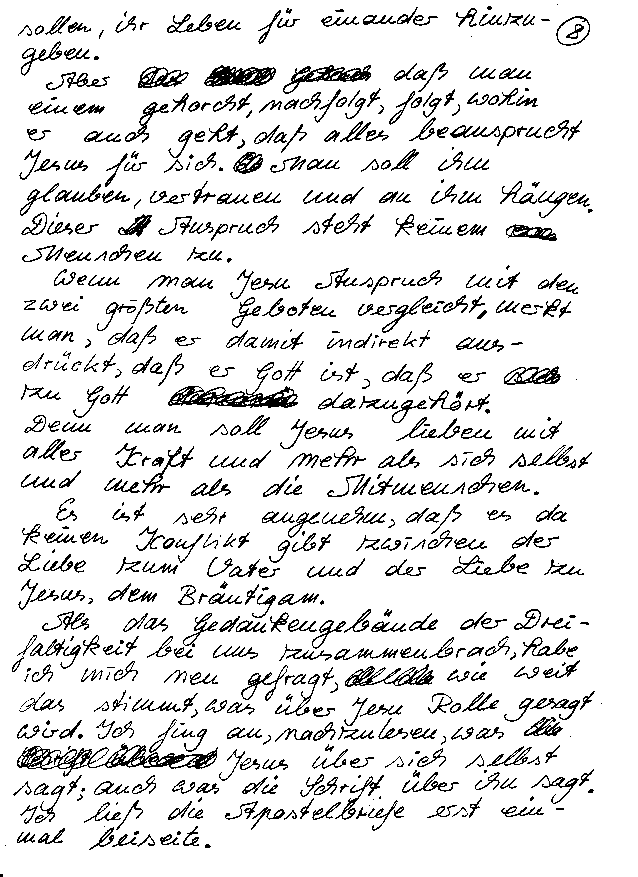 sollen, ihr Leben für einander hinzu-
geben.
8
Aber daß man
einem gehorcht, nachfolgt, folgt, wohin
er auch geht, daß alles beansprucht
Jesus für sich. Man soll ihm
glauben, vertrauen und an ihm hängen.
Dieser Anspruch steht keinem
Menschen zu.
Wenn man Jesu Anspruch mit den
zwei größten Geboten vergleicht, merkt
man, daß er damit indirekt aus-
drückt, daß er Gott ist, daß er
zu Gott dazugehört.
Denn man soll Jesus lieben mit
aller Kraft und mehr als sich selbst
und mehr als die Mitmenschen.
Es ist sehr angenehm, daß es da
keinen Konflikt gibt zwischen der
Liebe zum Vater und der Liebe zu
Jesus, dem Bräutigam.
Als das Gedankengebäude der Drei-
faltigkeit bei uns zusammenbrach, habe
ich mich neu gefragt, wie weit
das stimmt, was über Jesu Rolle gesagt
wird. Ich fing an, nachzulesen, was
Jesus über sich selbst
sagt; auch was die Schrift über ihn sagt.
Ich ließ die Apostelbriefe erst ein-
mal beiseite.